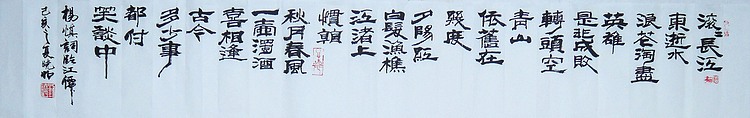 滚〻長江
東逝水
浪花淘盡
英雄
是非成敗
轉頭空
青山
依舊在
幾度
夕陽紅
白髮漁樵
江渚上
慣
秋月春風
一壺濁酒
喜相逢
古今
多少事
都付
笑談中
楊慎詞臨江僊
己亥之夏